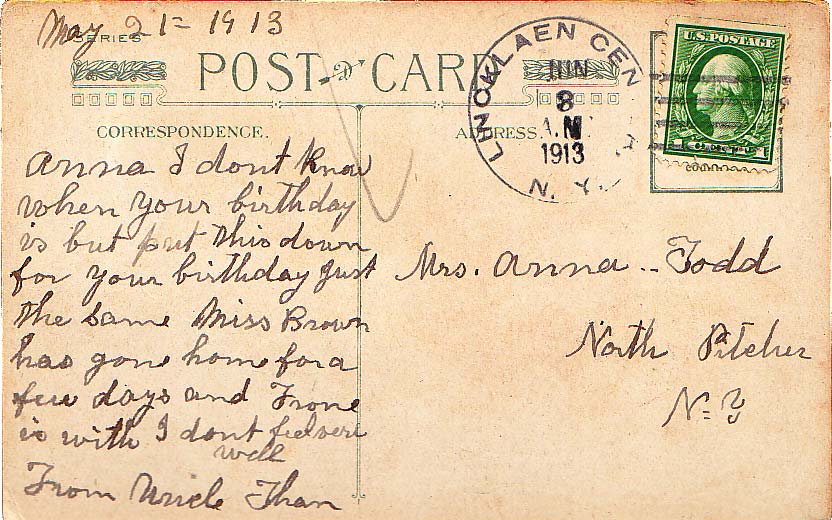 May 21= 1913
SERIES
POST CARD
CORRESPONDENCE.
ADDRESS.
LINCKLAEN CEN
JUN
8
A.M
1913
N.Y.
U.S. POSTAGE
Anna I dont know
when your birthday
is but put this down
for your birthday just
the same Miss Brown
has gone home for a
few days and
is with I dont feel very
well
From Uncle Than
Mrs. Anna -- Todd
North Pitcher
N=Y